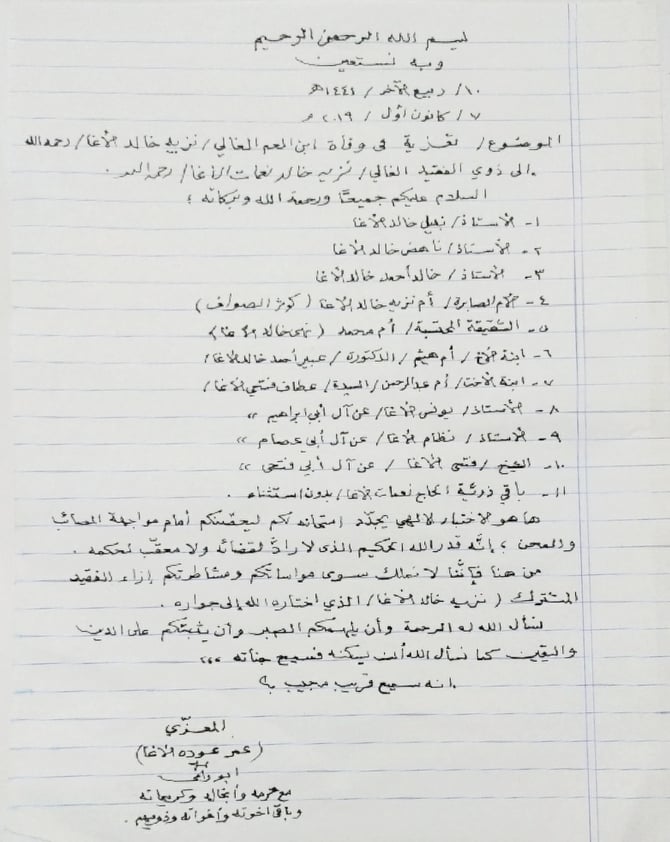 بسم الله الرحمن الرحيم
وبه نستعين
١٠/ ربيع الآخر / ١٤٤١هـ
٧/ كانون أول / ٢٠١٩م
الموضوع/ تعزية في وفاة ابن العم الغالي/ نزيه خالد الأغا/ رحمه الله
إلى ذوي الفقيد الغالي/ نزيه خالد نعمات الأغا/ رحمه الله.
السلام عليكم جميعًا ورحمة الله وبركاته؛
١- الأستاذ/ نبيل خالد الأغا
٢- الأستاذ/ ناهض خالد الأغا
٣- الأستاذ/ خالد أحمد خالد الأغا
٤- الأم الصابرة/ أم نزيه خالد الأغا (كوثر الصواف)
٥- الشقيقة المحتسبة/ أم محمد (نهى خالد الأغا)
٦- ابنة الأخ/ أم هيثم/ الدكتورة/ عبير أحمد خالد الأغا/
٧- ابنة الأخت/ أم عبدالرحمن/ السيدة/ عطاف فتحي الأغا/
٨- الأستاذ/ يونس الأغا/ عن آل أبي ابراهيم ،،
٩- الأستاذ/ نظام الأغا/ عن آل أبي عصام ،،
١٠- الشيخ/ فتحي الأغا / عن آل أبي فتحي ،،
١١- باقي ذرية الحاج نعمات الأغا/ بدون استثناء.
ها هو الاختبار الالهي يجدّد امتحانه لكم ليعجنكم أمام مواجهة المصائب
والمحن؛ إنَّه قدر الله الحكيم الذي لا رادَّ لقضائه ولا معقّب لحكمه.
من هنا فإنَّنا لا نملك سوى مواساتكم ومشاطرتكم إزاء الفقيد
المشترك (نزيه خالد الأغا/ الذي اختاره الله إلى جواره.
نسأل الله له الرحمة وأن يلهمكم الصبر وأن يثبتكم على الدين
واليقين كما نسأل الله أن يسكنه فسيح جناته ،،،
انه سميع قريب مجيب ؟
المعزّي
(عمر عوده الأغا)
ابو رامي
مع حرمه وأنجاله وكريماته
وباقي اخوته وأخواته وذويهم.